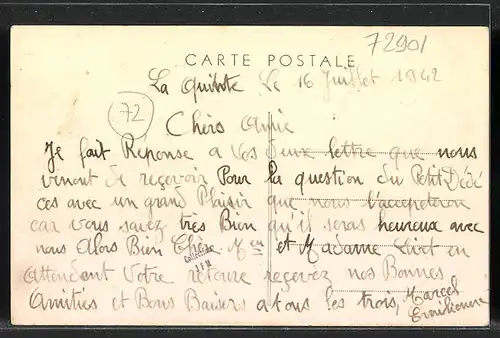 72901
CARTE POSTALE
La Quinte Le 16 Juillet 1942
72
Chers Amie
Je fait Reponse a Vos deux lettre que nous
vinont de reçevoir Pour la question du Petit Dédé
ces avec un grand Plaisir que nous l'accepteron
car vous savez très Bien qu'il seras heureux avec
nous Alors Bien Chère Mer et Madame en
Attendent Votre retoure reçevez nos Bonnes
Amitiés et Bons Baisers a tous les trois, Marcel
Emilienne
Collection
J F M